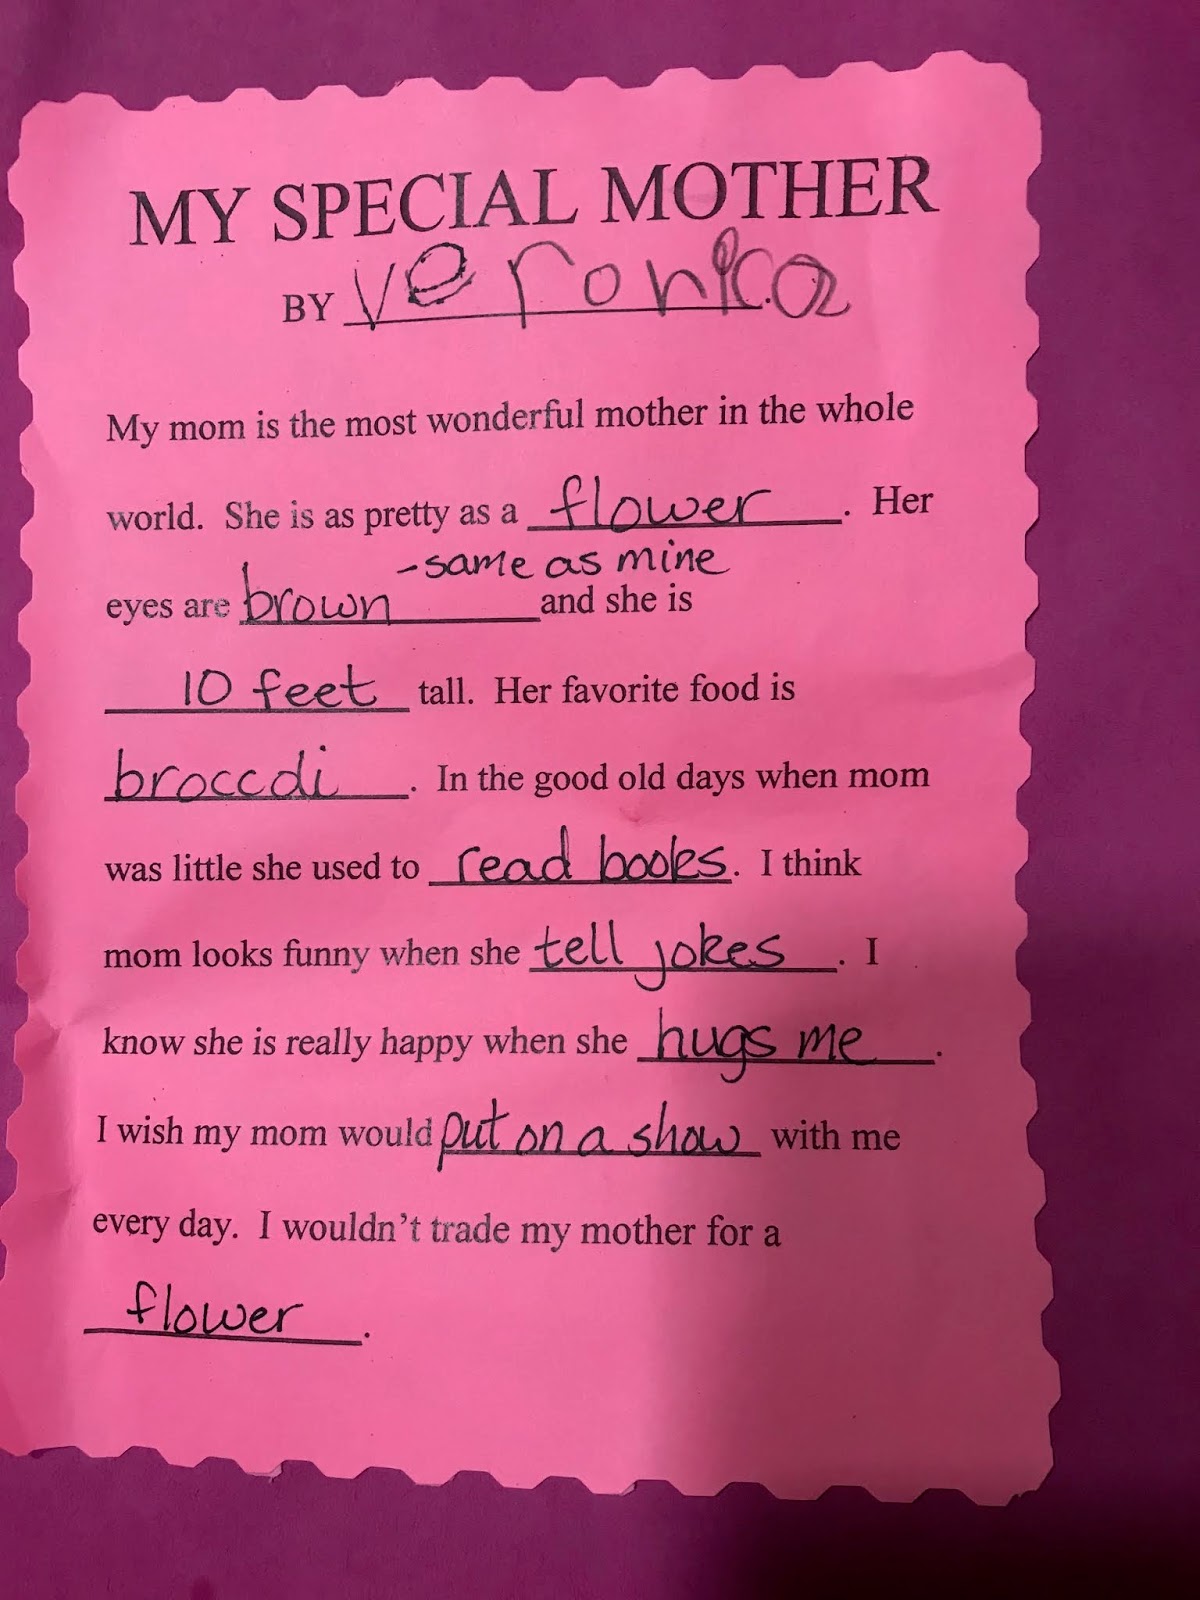 MY SPECIAL MOTHER
BY Veronica
My mom is the most wonderful mother in the whole
world. She is as pretty as a flower. Her
-same as mine
eyes are brown and she is
10 feet tall. Her favorite food is
broccoli. In the good old days when mom
was little she used to read books. I think
mom looks funny when she tell jokes. I
know she is really happy when she hugs me.
I wish my mom would put on a show with me
every day. I wouldn't trade my mother for a
flower.